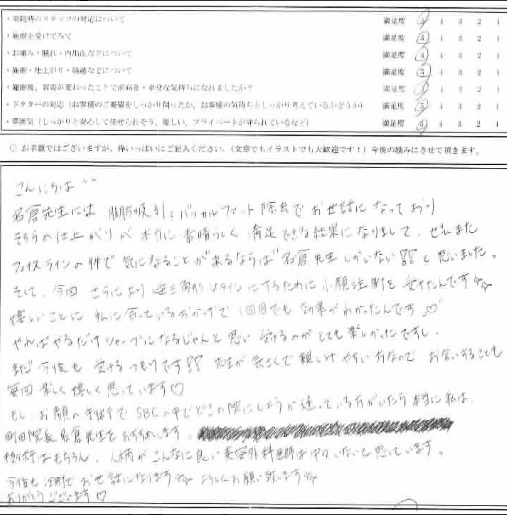 ・来院時のスタッフの対応について 満足度 5 4 3 2 1
・施術を受けてみて 満足度 5 4 3 2 1
・お痛み・腫れ・内出血などについて 満足度 5 4 3 2 1
・施術・仕上がり・結果などについて 満足度 5 4 3 2 1
・施術後、容姿が変わったことで前向き・幸せな気持ちになれましたか? 満足度 5 4 3 2 1
・ドクターの対応(お客様のご要望をしっかり伺ったか、お客様の気持ちをしっかり考えているかどうか) 満足度 5 4 3 2 1
・雰囲気(しっかりと安心して任せられそう、優しい、プライベートが守られているなど) 満足度 5 4 3 2 1
◎ お手数ではございますが、枠いっぱいにご記入ください。(文章でもイラストでも大歓迎です!)今後の励みにさせて頂きます。
こんにちは^^
名倉先生には 脂肪吸引とバッカルファット除去でお世話になっており
そちらの仕上がりが本当に素晴らしく満足できる結果になりまして、ぜひまた
フェイスラインの件で気になることがあるならば名倉先生しかいない!!と思いました。
そして、今回 さらにより逆三角形Vラインにするために小顔注射を受けたんです
嬉しいことに 私に合っているおかげで1回目でも効果がわかったんです♡
やればやるだけシャープになるじゃんと思い 受けるのがとても楽しかったですし、
まだ今後も受けるつもりです!! 先生が気さくで親しみやすい方なので お会いすることも
毎回楽しく嬉しく思っています♡
もし、お顔の手術で SBCの中でどこの院にしようか迷っている方がいたら本当に私は、
町田院長名倉先生をおすすめします。
技術はもちろん、人柄がこんなに良い美容外科医師は中々いないと思っています。
今後も注射でお世話になります よろしくお願い致します
ありがとうございます♡